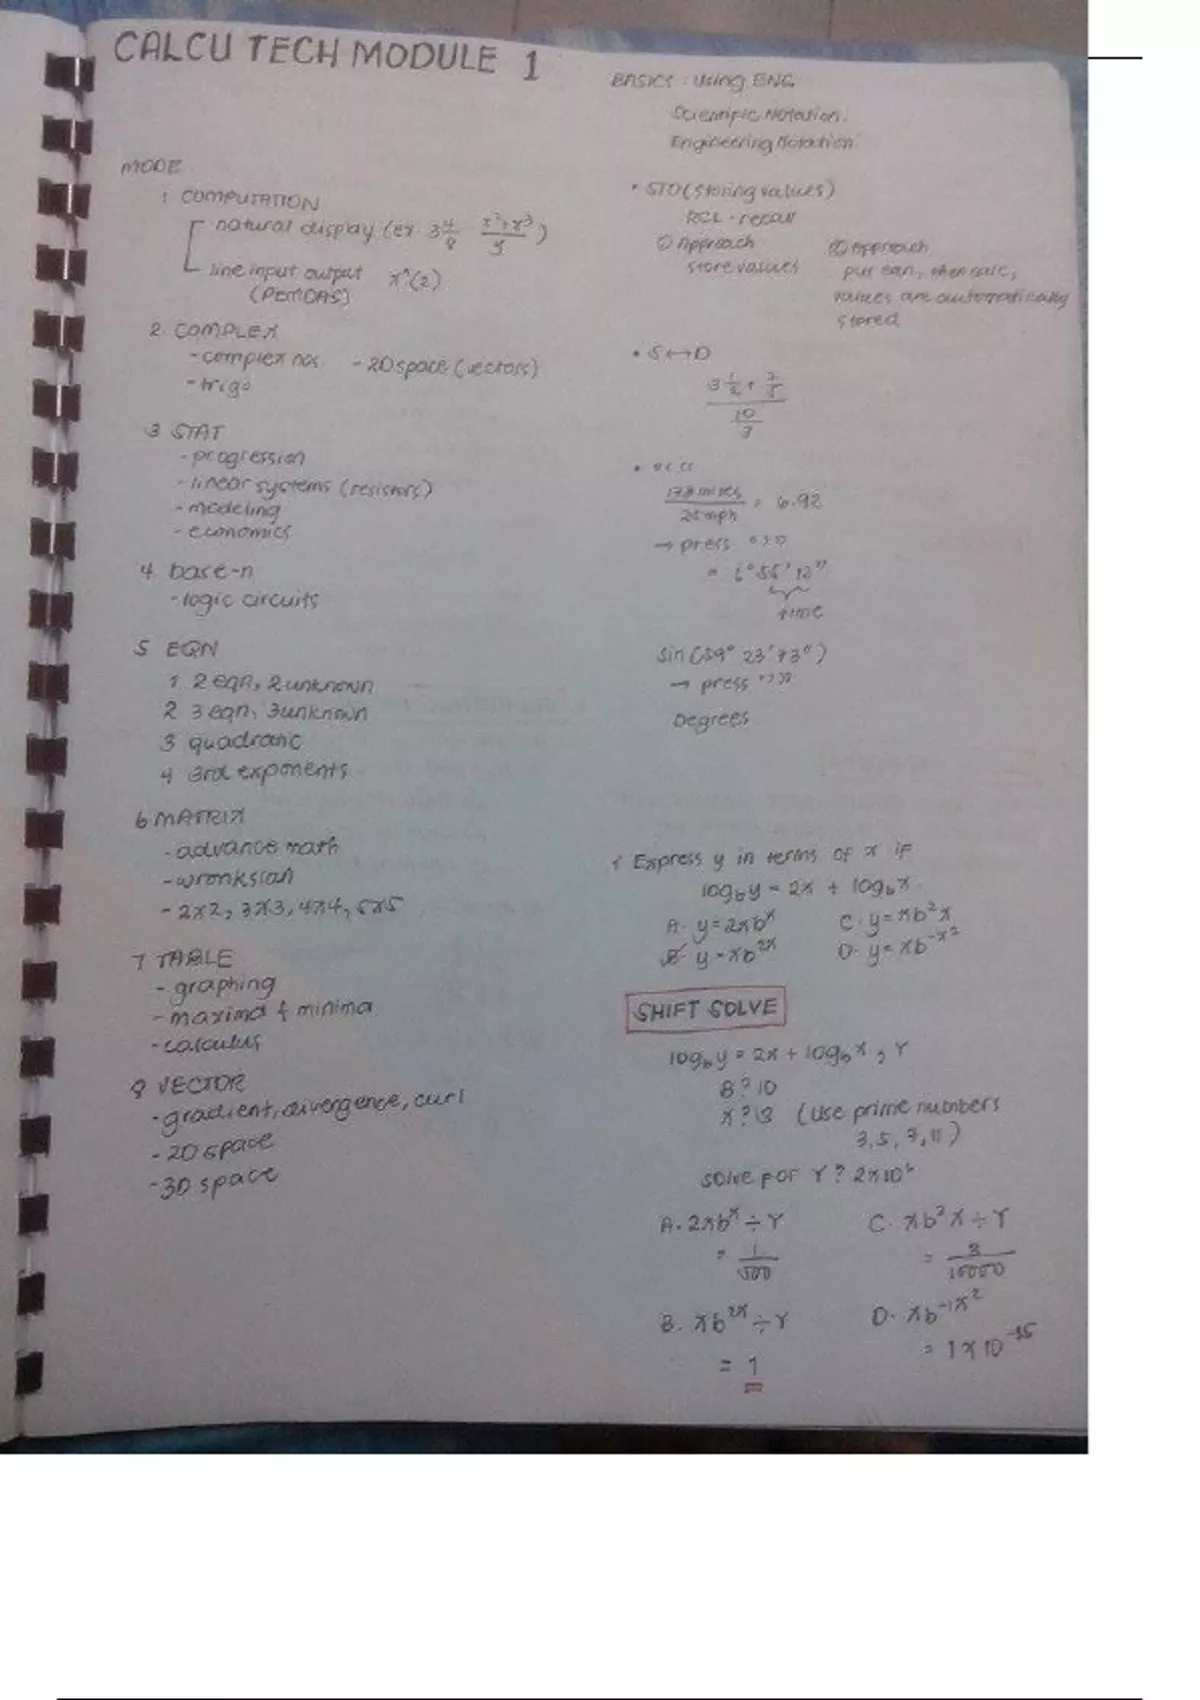 CALCU TECH MODULE 1
MODE
1 COMPUTATION
natural display (ex 3 4/8 (x²+x³)/y)
line input output x^(2)
(PEMDAS)
2 COMPLEX
-complex nos -2D space (vectors)
-trigo
3 STAT
-progression
-linear systems (resistors)
-modeling
-economics
4 base-n
-logic circuits
5 EQN
1 2 eqn, 2 unknown
2 3 eqn, 3 unknown
3 quadratic
4 3rd exponents
6 MATRIX
-advance math
-wronksian
-2x2, 3x3, 4x4, 5x5
7 TABLE
-graphing
-maxima & minima
-calculus
8 VECTOR
-gradient, divergence, curl
-2D space
-3D space
BASICS : using ENG
Scientific Notation.
Engineering Notation
• STO (storing values)
RCL - recall
① Approach
store values
② Approach
put eqn, then calc,
values are automatically
stored
• S↔D
(3 1/2 + 7/5)/(10/3)
miles
mph
= 6.92
→ press °,,,
= 6° 55' 12"
time
sin (59° 23' 73°)
→ press °,,,
Degrees
1 Express y in terms of x if
log_b y = 2x + log_b x
A. y = 2xb^x C. y = xb²x
B. y = xb^2x D. y = xb^-x²
SHIFT SOLVE
log_b y = 2x + log_b x, Y
B? 10
X? 3 (use prime numbers
3, 5, 7, 11)
solve for Y?
A. 2xb^x ÷ Y C. xb²x ÷ Y
= 1/500
B. xb^2x ÷ Y
= 1
= 1 x 10^-15